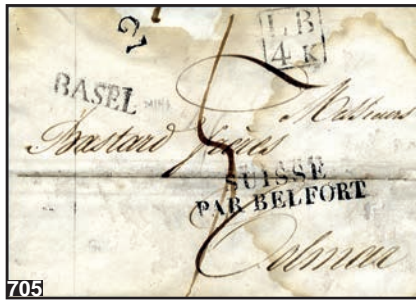 L B
4 K
BASEL
Messieurs
Bastard frères
SUISSE
PAR BELFORT
Colmar
705